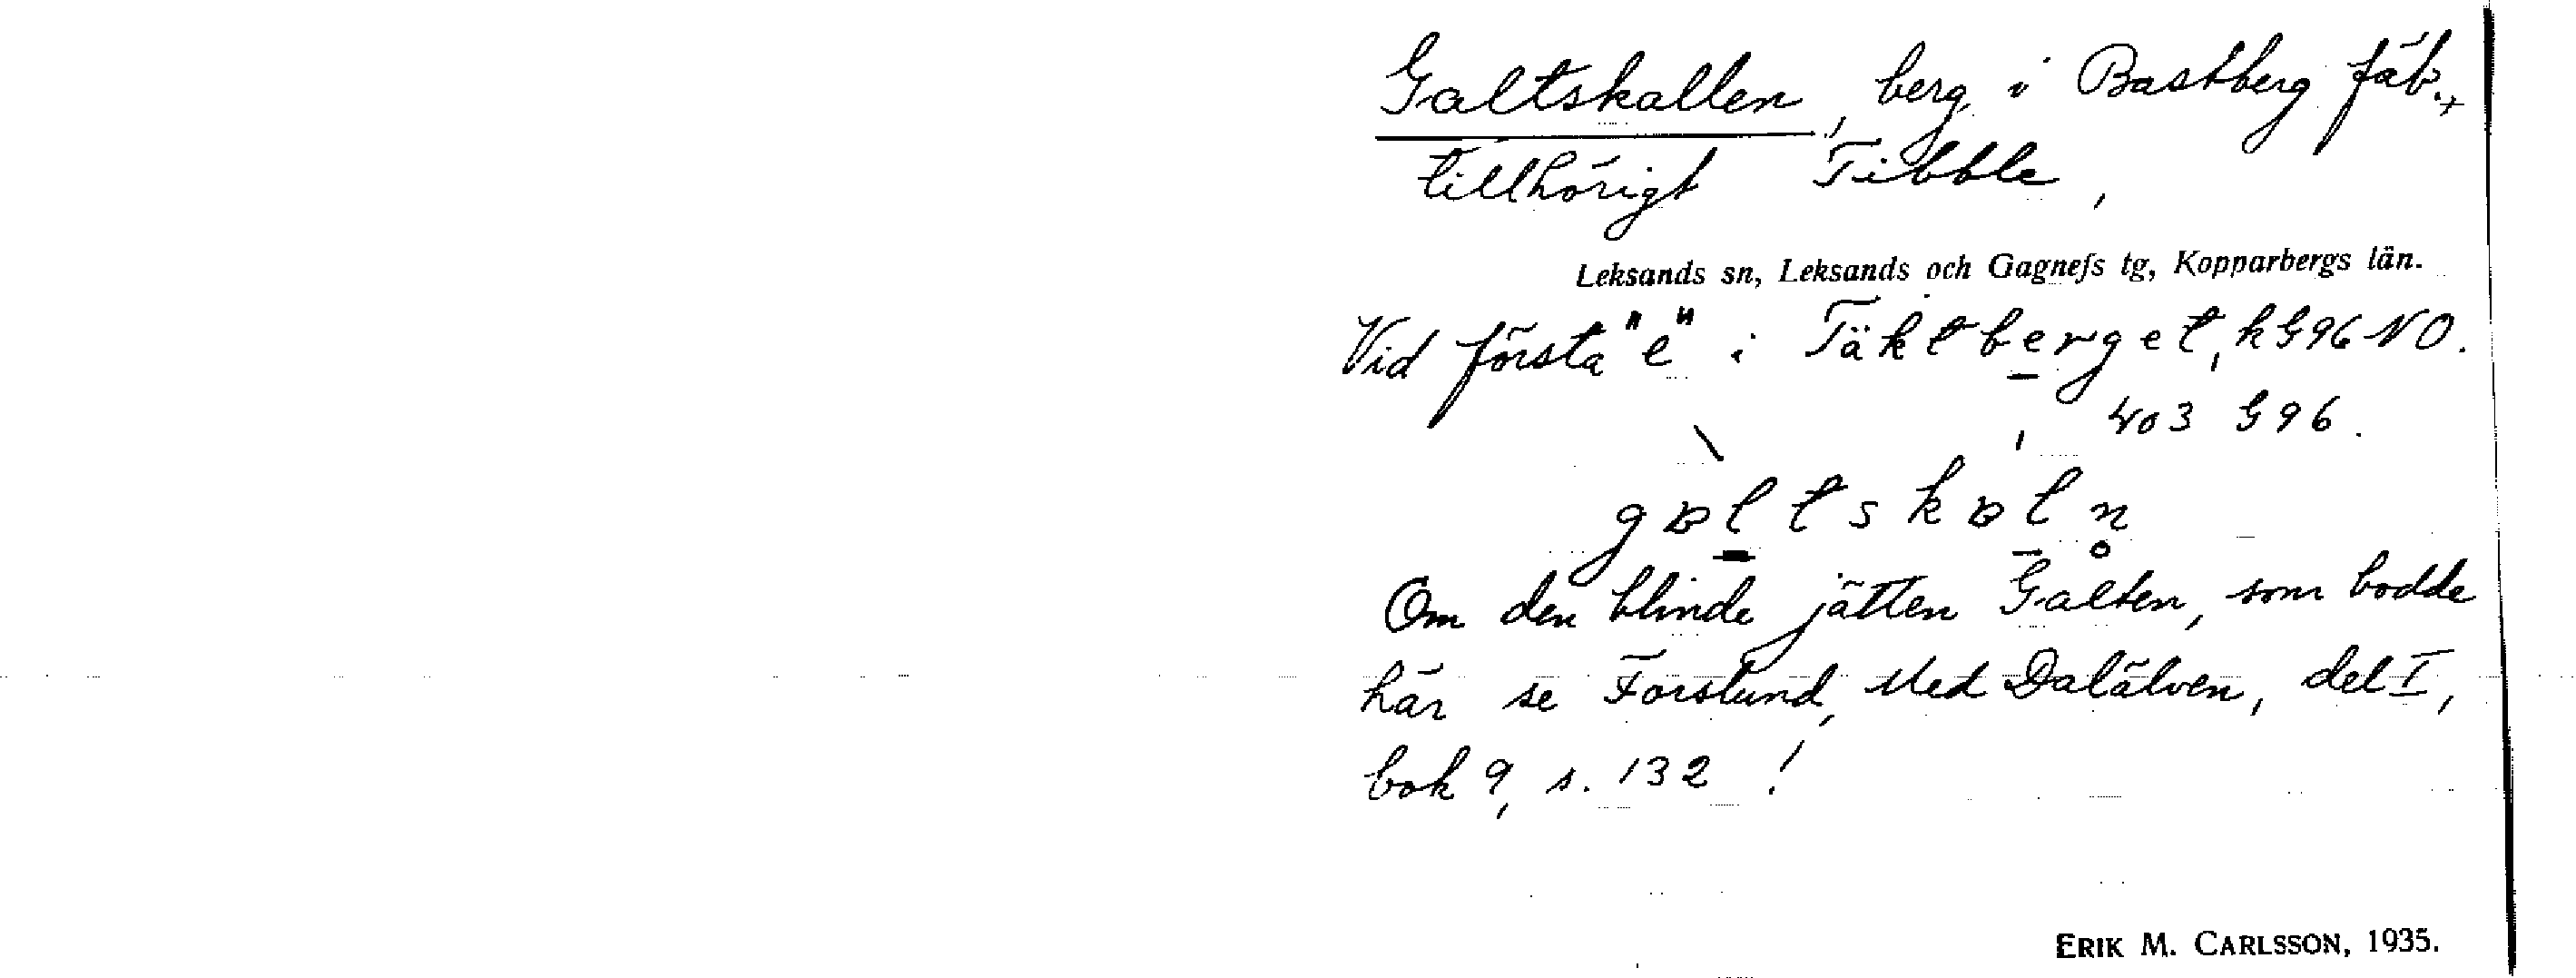 Galtskallen, berg i Bastberg fäb.,
tillhörigt Tibble,
Leksands sn, Leksands och Gagnefs tg, Kopparbergs län.
Vid första "e" i Täktberget, kG96 NO.
403 G96.
Om den blinde jätten Galten, som bodde
här se Forslund, Med Dalälven, del I,
bok 9, s. 132!
ERIK M. CARLSSON, 1935.